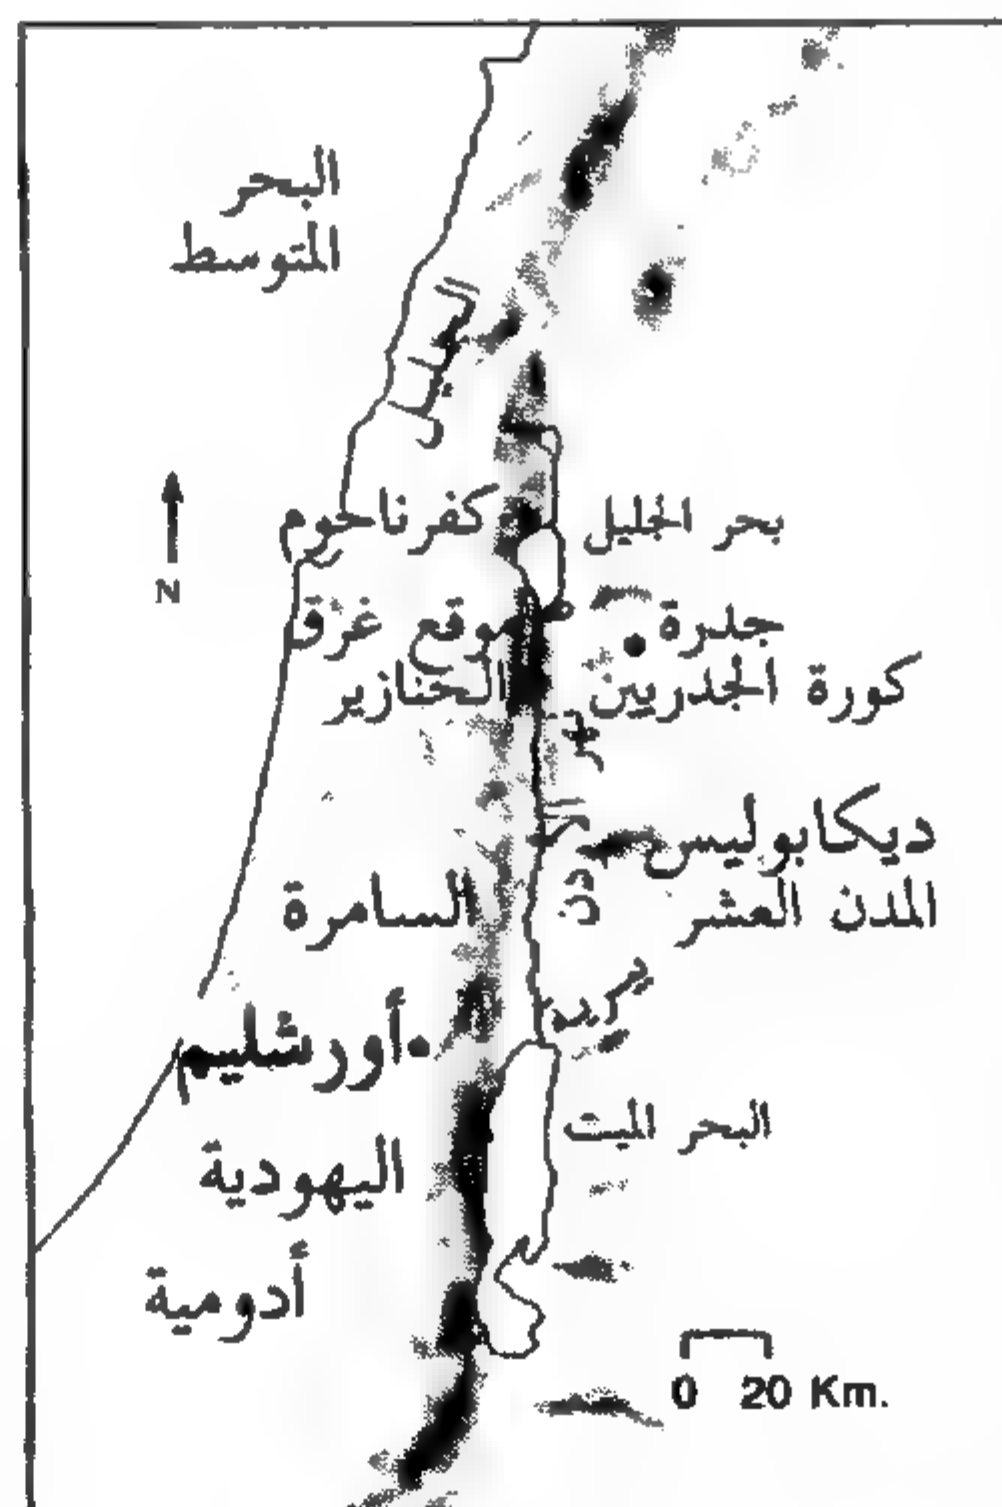 البحر
المتوسط
الجليل
كفرناحوم
بحر الجليل
N
موقع غرق
الخنازير
جلرة
كورة الجدريين
نهر
الأردن
ديكابوليس
المدن العشر
السامرة
بيرية
أورشليم
البحر الميت
اليهودية
أدومية
0 20 Km.